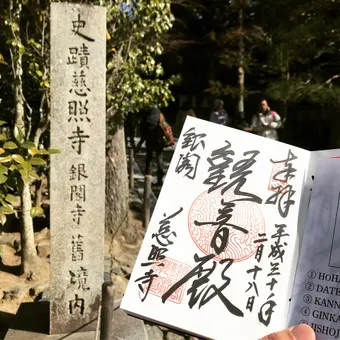 史蹟慈照寺銀閣寺舊境内
奉拝
平成三十年
二月十八日
觀音殿
銀閣
慈照寺
① HOHA
② DATE
③ KANN
④ GINKA
⑤ JISHOJ